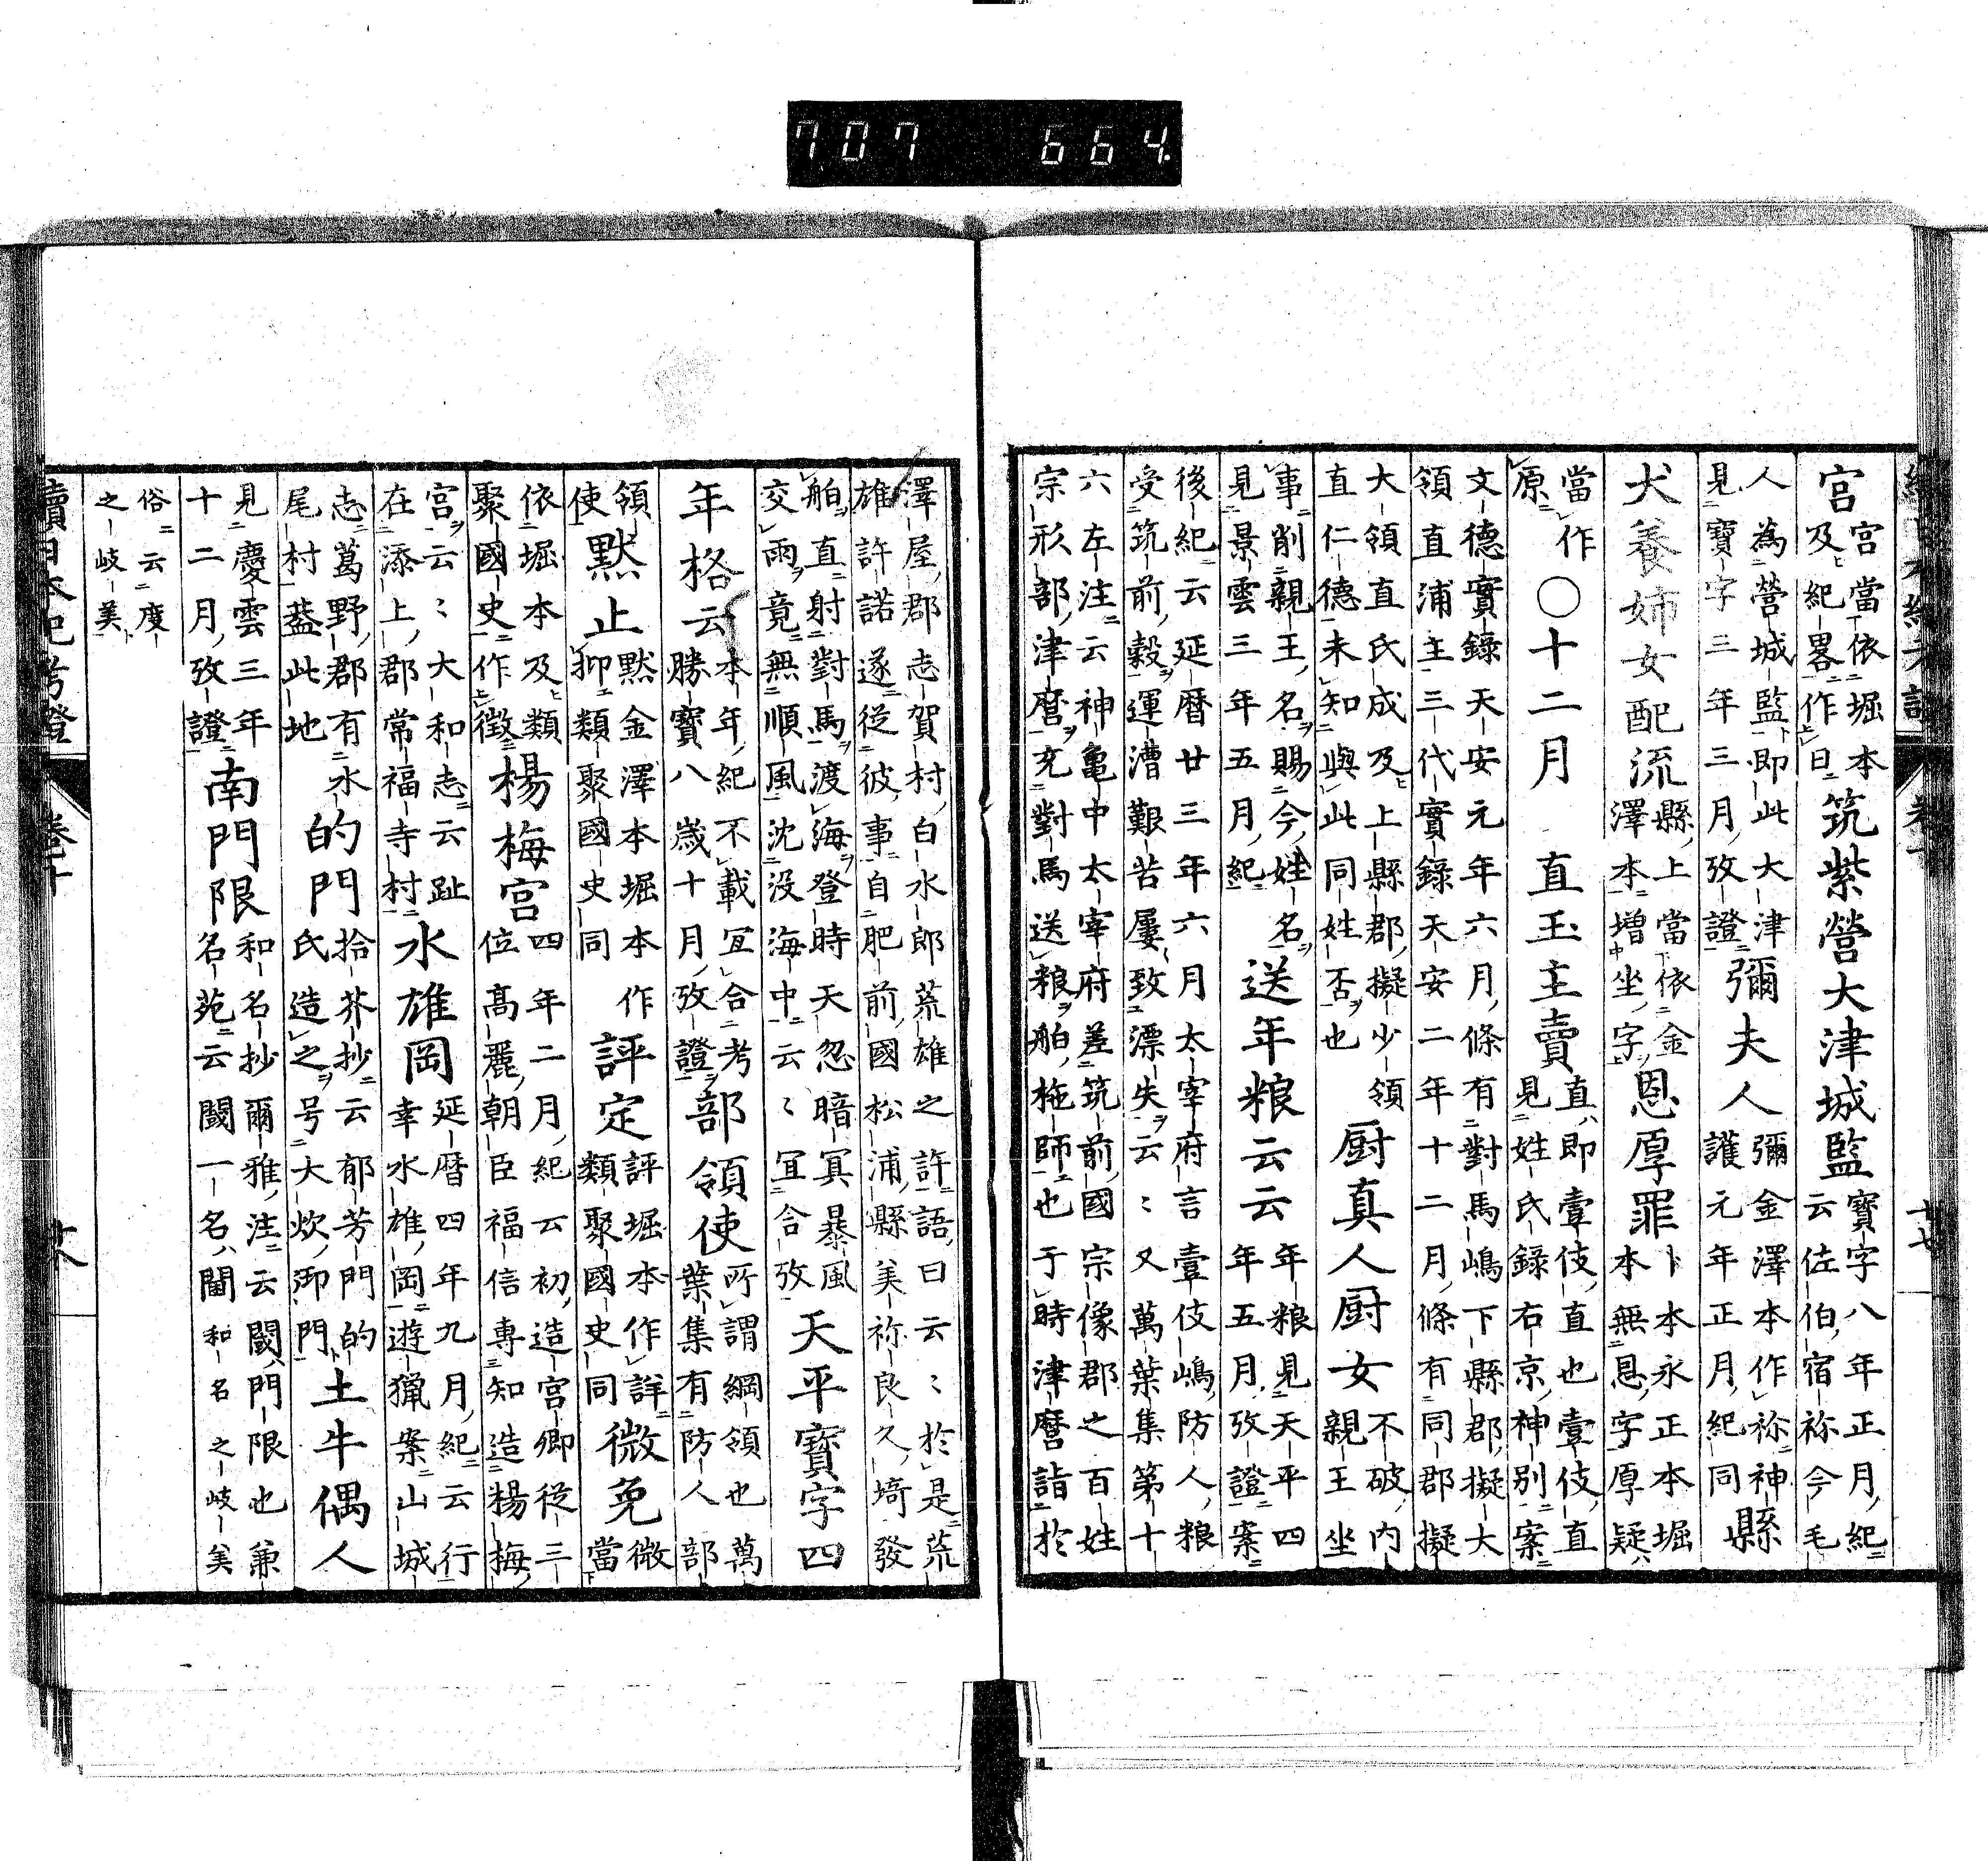 宮宮當依堀本
及紀畧作日
筑紫營大津城監寶字八年正月紀
云佐伯宿祢今毛
人為營城監即此大津
見寶字三年三月攷證
彌夫人彌金澤本作祢神
護元年正月紀同
縣
犬養姉女配流縣上當依金
澤本增坐字
恩厚罪卜本永正本堀
本無恩字厚疑
當作
原
○十二月 直玉主賣直即壹伎直也壹伎直
見姓氏錄右京神別案
文德實錄天安元年六月條有對馬嶋下縣郡擬大
領直浦主三代實錄天安二年十二月條有同郡擬
大領直氏成及上縣郡擬少領
直仁德未知與此同姓否也
厨真人厨女不破內
親王坐
事削親王名賜今姓名
見景雲三年五月紀
送年粮云云年粮見天平四
年五月攷證案
後紀云延曆廿三年六月太宰府言壹伎嶋防人粮
受筑前穀運漕艱苦屢致漂失云〻又萬葉集第十
六左注云神亀中太宰府差筑前國宗像郡之百姓
宗形部津麿充對馬送粮舶柂師也于時津麿詣於
澤屋郡志賀村白水郎荒雄之許語曰云〻於是荒
雄許諾遂從彼事自肥前國松浦縣美祢良久埼發
舶直射對馬渡海登時天忽暗冥暴風
交雨竟無順風沈没海中云〻宜合攷
天平寶字四
年格云本年紀不載宜合考
勝寶八歲十月攷證
部領使所謂綱領也萬
葉集有防人部
領
使
黙止黙金澤本堀本作
抑類聚國史同
評定評堀本作詳
類聚國史同
微免微
當
依堀本及類
聚國史作徵
楊梅宮四年二月紀云初造宮卿從三
位高麗朝臣福信專知造楊梅
宮云〻大和志云趾
在添上郡常福寺村
水雄岡延曆四年九月紀云行
幸水雄岡遊猟案山城
志葛野郡有水
尾村蓋此地
的門拾芥抄云郁芳門的
氏造之号大炊御門
土牛偶人
見慶雲三年
十二月攷證
南門限和名抄爾雅注云閾門限也兼
名苑云閾一名閫和名之岐美
俗云度
之岐美
續日本紀考證
卷十
廿八
707 664.